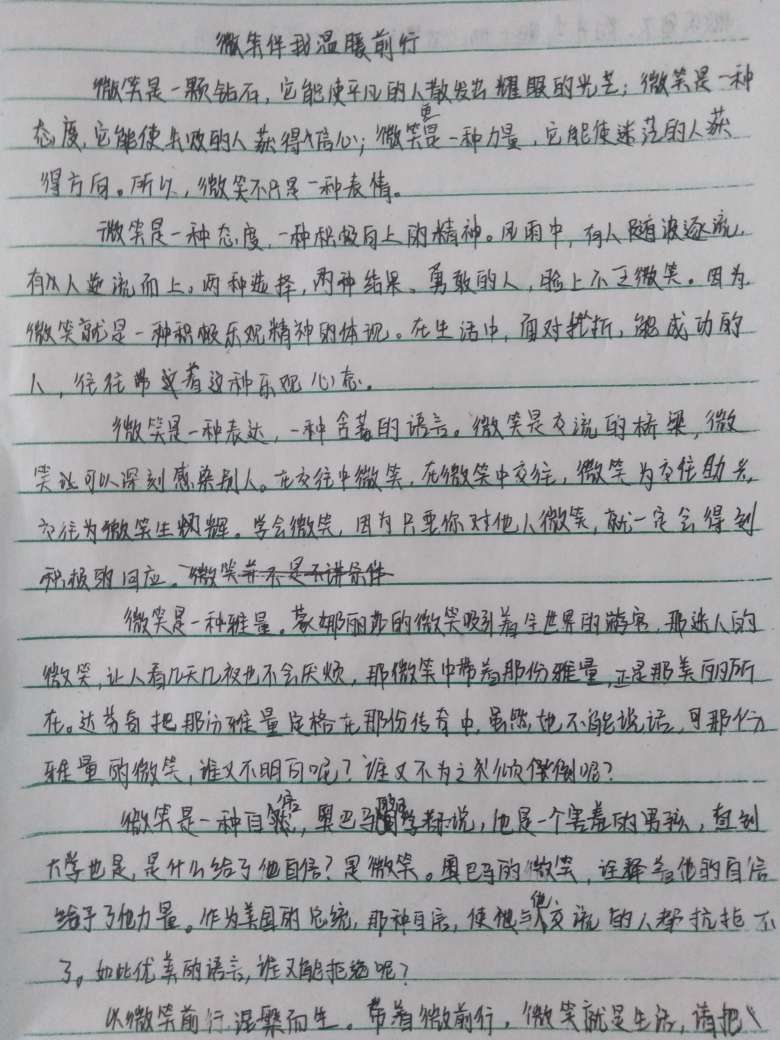 微笑伴我温暖前行
微笑是一颗钻石，它能使平凡的人散发出耀眼的光芒；微笑是一种
态度，它能使失败的人获得信心；微笑更是一种力量，它能使迷茫的人获
得方向。所以，微笑不只是一种表情。
微笑是一种态度，一种积极向上的精神。风雨中，有人随波逐流，
有人逆流而上，两种选择，两种结果。勇敢的人，脸上不乏微笑。因为
微笑就是一种积极乐观精神的体现。在生活中，面对挫折，能成功的
人，往往带着这种乐观心态。
微笑是一种表达，一种含蓄的语言。微笑是交流的桥梁，微
笑让可以深刻感染别人。在交往中微笑，在微笑中交往，微笑为交往助长，
交往为微笑生辉。学会微笑，因为只要你对他人微笑，就一定会得到
积极的回应。微笑并不是不讲条件
微笑是一种雅量。蒙娜丽莎的微笑吸引着全世界的游客，那迷人的
微笑，让人看几天几夜也不会厌烦，那微笑中带着那份雅量，正是那美丽所
在。达芬奇把那份雅量定格在那份传奇中，虽然她不能说话，可那份
雅量的微笑，谁又不明白呢？谁又不为之倾倒呢？
微笑是一种自信，奥巴马说，他是一个害羞的男孩，直到
大学也是，是什么给了他自信？是微笑。奥巴马的微笑，诠释着他的自信
给予了他力量。作为美国的总统，那种自信，使得与他交流的人都抗拒不
了。如此优美的语言，谁又能拒绝呢？
以微笑前行，涅槃而生。带着微前行，微笑就是生活，请把